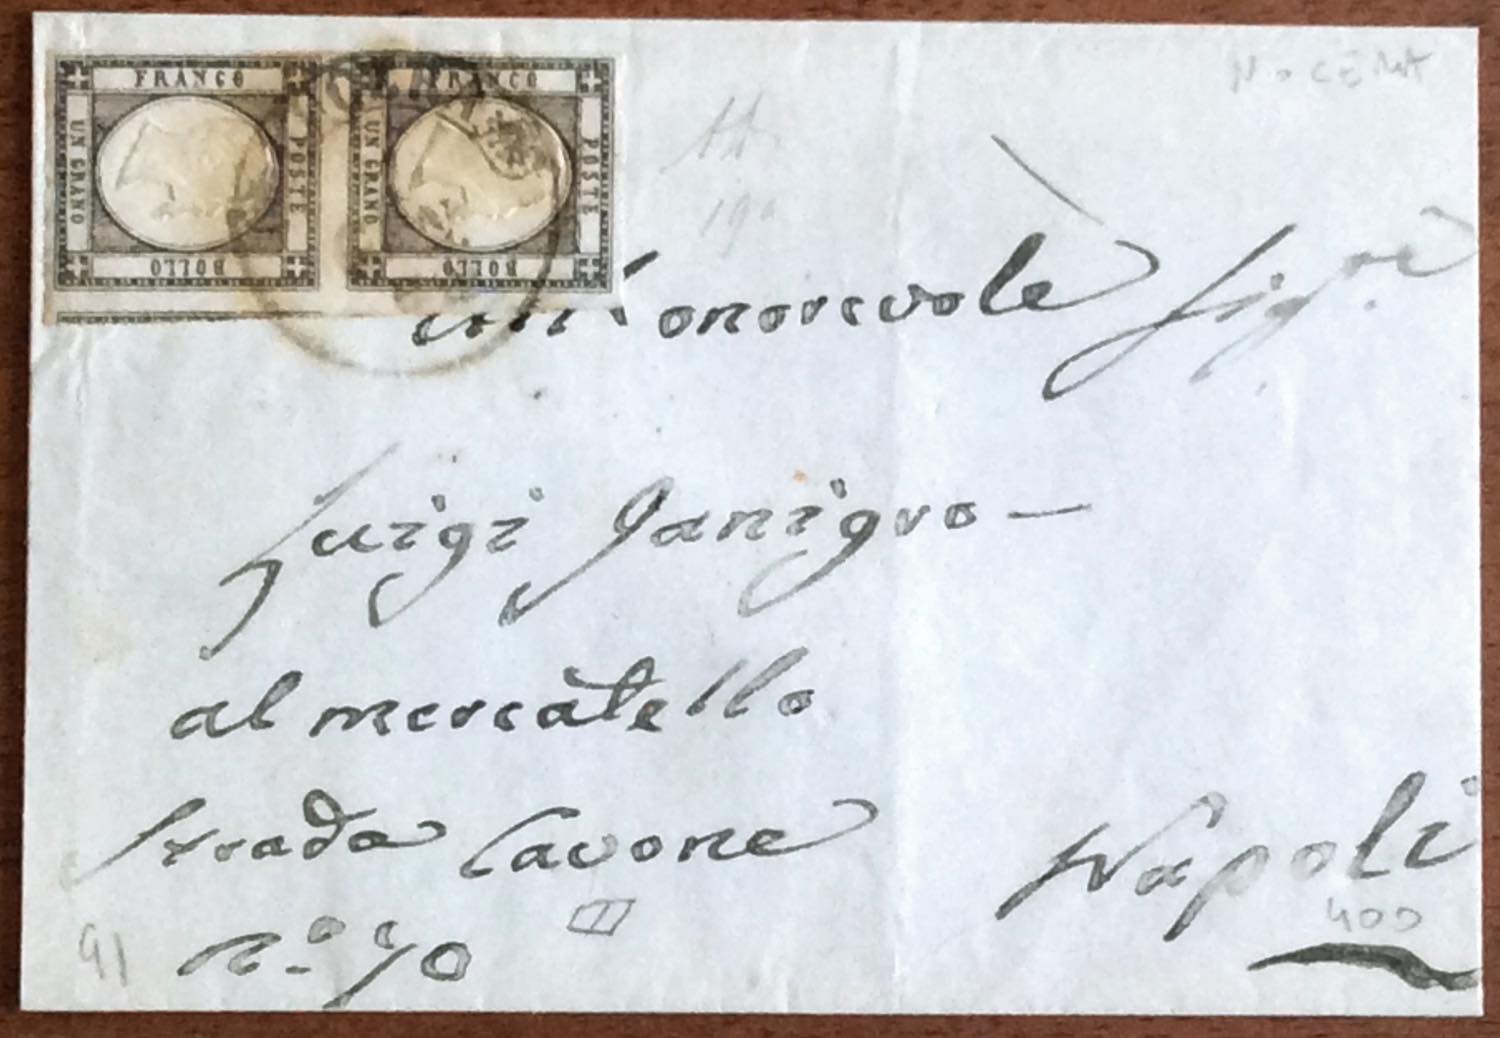 FRANCO
UN GRANO
POSTE
BOLLO
FRANCO
UN GRANO
POSTE
BOLLO
NOCERA
19
All'onorevole Sigre
Luigi Janigro —
al mercatello
strada Cavone
Napoli
n.º 70
91
400